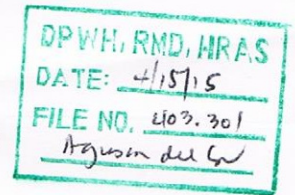 DPWH, RMD, HRAS
DATE: 4/15/15
FILE NO. 403.301
Agusan del Sur